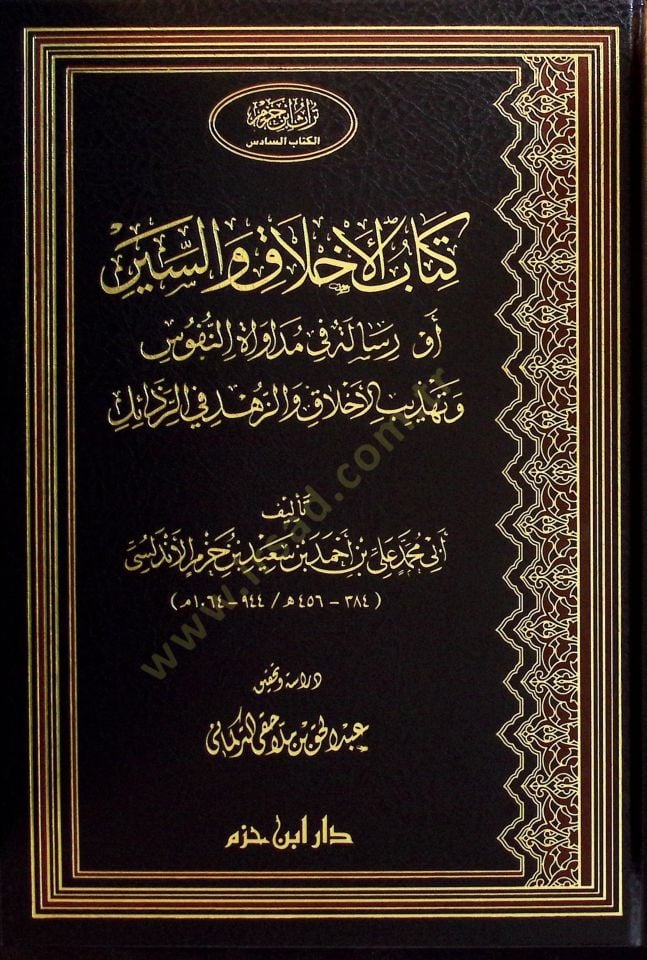 تراث ابن حزم
الكتاب السادس
كتاب الأخلاق والسير
أو رسالة في مداواة النفوس
وتهذيب الأخلاق والزهد في الرذائل
تأليف
أبي محمد علي بن أحمد بن سعيد بن حزم الأندلسي
(٣٨٤ - ٤٥٦ هـ / ٩٤٤ - ١٠٦٤ م)
دراسة وتحقيق
عبد الحق بن ملاحقي التركماني
دار ابن حزم